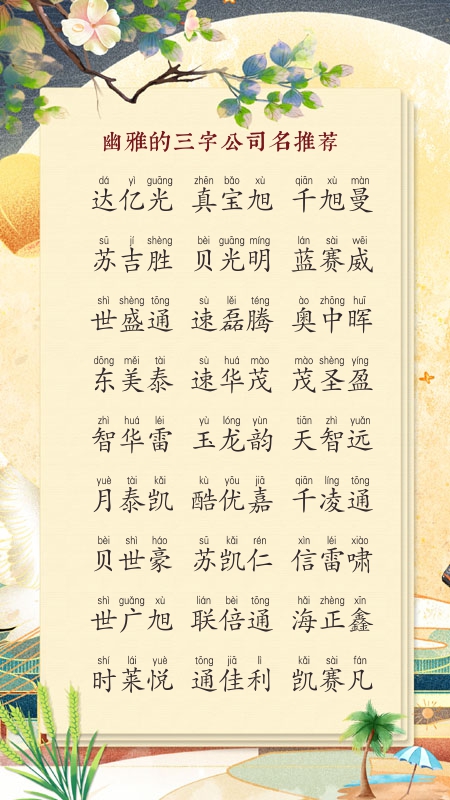 幽雅的三字公司名推荐
dá yì guāng zhēn bǎo xù qiān xù màn
达亿光 真宝旭 千旭曼
sū jí shèng bèi guāng míng lán sài wēi
苏吉胜 贝光明 蓝赛威
shì shèng tōng sù lěi téng ào zhōng huī
世盛通 速磊腾 奥中晖
dōng měi tài sù huá mào mào shèng yíng
东美泰 速华茂 茂圣盈
zhì huá léi yù lóng yùn tiān zhì yuǎn
智华雷 玉龙韵 天智远
yuè tài kǎi kù yōu jiā qiān líng tōng
月泰凯 酷优嘉 千凌通
bèi shì háo sū kǎi rén xìn léi xiào
贝世豪 苏凯仁 信雷啸
shì guǎng xù lián bèi tōng hǎi zhèng xīn
世广旭 联倍通 海正鑫
shí lái yuè tōng jiā lì kǎi sài fán
时莱悦 通佳利 凯赛凡